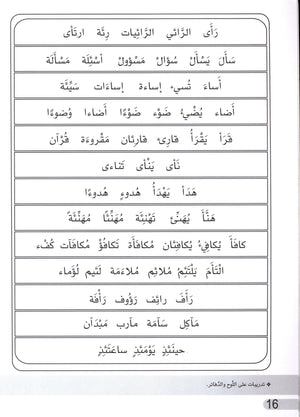 رَأَى الرَّائي الرَّائيات رِئَة ارتَأى
سَأَلَ يَسْأَلُ سُؤالٌ مَسْؤولٌ أسْئِلَة مَسْأَلَة
أَساءَ تُسيء إساءة إساءَات سَيِّئَة
أَضاء يُضيْءُ ضَوْء ضَوْءًا أَضاءا وُضوءًا
قَرَأَ يَقْرَأُ قارِئ قارِئان مَقْروءَة قُرْآن
نَأى يَنْأى تَناءى
هَدَأَ يَهْدَأُ هُدوء هُدوءًا
هَنَّأَ يُهَنِّئُ تَهْنِئَة مُهَنِّئًا مُهَنِّئَةً
كافَأَ يُكافِئُ يُكافِئان مُكافَأَة تَكافُؤ مُكافَآت كُفْء
الْتَأَمَ يَلْتَئِمُ مُلائِم مُلاءَمَة لَئيم لُؤَماء
رَأَفَ رائِف رَؤُوف رَأْفَة
مَآكِل سَآمَة مآرب مَبْدَآن
حينَئِذٍ يَوْمَئِذٍ ساعَتَئِذٍ
تدريبات على اللَّوح والدَّفاتر.
16